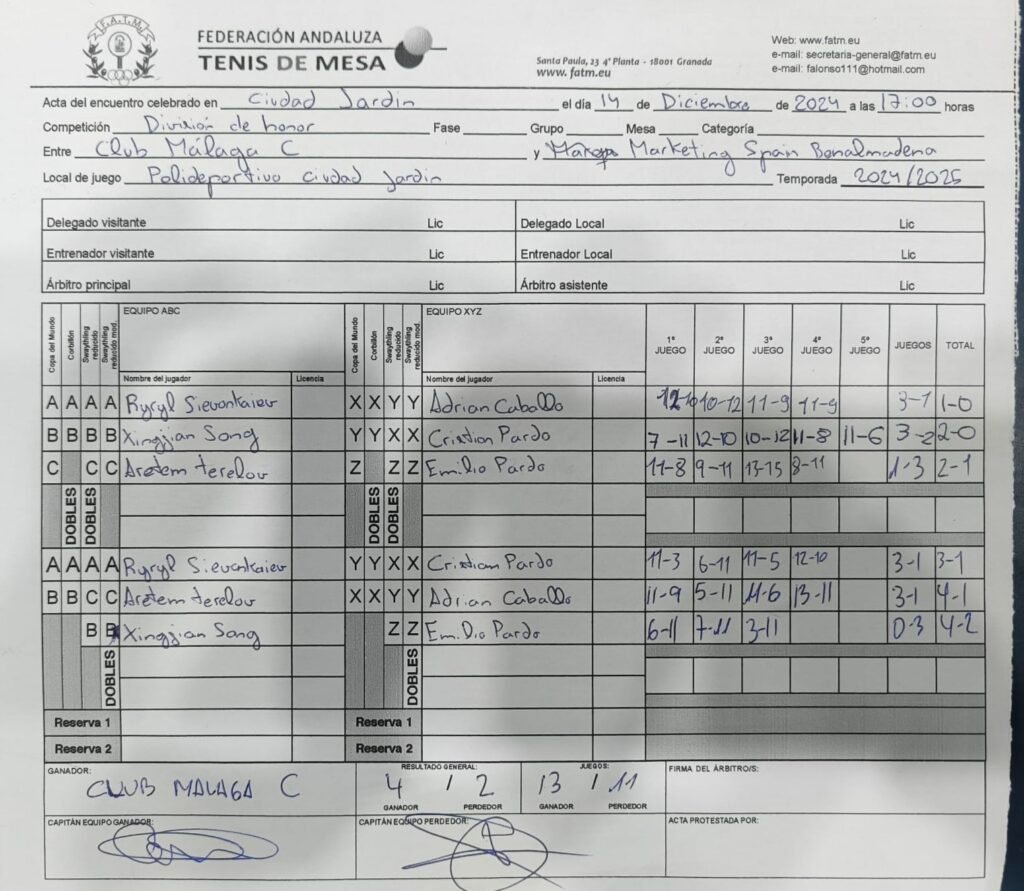 F.A.T.M.
FEDERACIÓN ANDALUZA
TENIS DE MESA
Santa Paula, 23 4ª Planta - 18001 Granada
www. fatm.eu
Web: www.fatm.eu
e-mail: secretaria-general@fatm.eu
e-mail: falonso111@hotmail.com
Acta del encuentro celebrado en Ciudad Jardin el día 14 de Diciembre de 2024 a las 17:00 horas
Competición División de honor Fase Grupo Mesa Categoría
Entre Club Málaga C y Marketing Spain Benalmadena
Local de juego Polideportivo Ciudad Jardin Temporada 2024/2025
Delegado visitante Lic Delegado Local Lic
Entrenador visitante Lic Entrenador Local Lic
Árbitro principal Lic Árbitro asistente Lic
Copa del Mundo Corbillón Swaythling reducido Swaythling reducido mod. EQUIPO ABC Copa del Mundo Corbillón Swaythling reducido Swaythling reducido mod. EQUIPO XYZ 1º JUEGO 2º JUEGO 3º JUEGO 4º JUEGO 5º JUEGO JUEGOS TOTAL
Nombre del jugador Licencia Nombre del jugador Licencia
A A A A Ryryl Sievonkaiev X X Y Y Adrian Caballo 12-10 10-12 11-9 11-9 3-1 1-0
B B B B Xingjian Song Y Y X X Cristian Pardo 7-11 12-10 10-12 11-8 11-6 3-2 2-0
C C C Aretem terelov Z Z Z Emilio Pardo 11-8 9-11 13-15 8-11 1-3 2-1
DOBLES DOBLES DOBLES DOBLES
A A A A Ryryl Sievonkaiev Y Y X X Cristian Pardo 11-3 6-11 11-5 12-10 3-1 3-1
B B C C Aretem terelov X X Y Y Adrian Caballo 11-9 5-11 11-6 13-11 3-1 4-1
B B Xingjian Song Z Z Emilio Pardo 6-11 7-11 3-11 0-3 4-2
DOBLES DOBLES
Reserva 1 Reserva 1
Reserva 2 Reserva 2
GANADOR: CLUB MALAGA C RESULTADO GENERAL: 4 / 2 GANADOR PERDEDOR JUEGOS: 13 / 11 GANADOR PERDEDOR FIRMA DEL ÁRBITRO/S:
CAPITÁN EQUIPO GANADOR: CAPITÁN EQUIPO PERDEDOR: ACTA PROTESTADA POR: